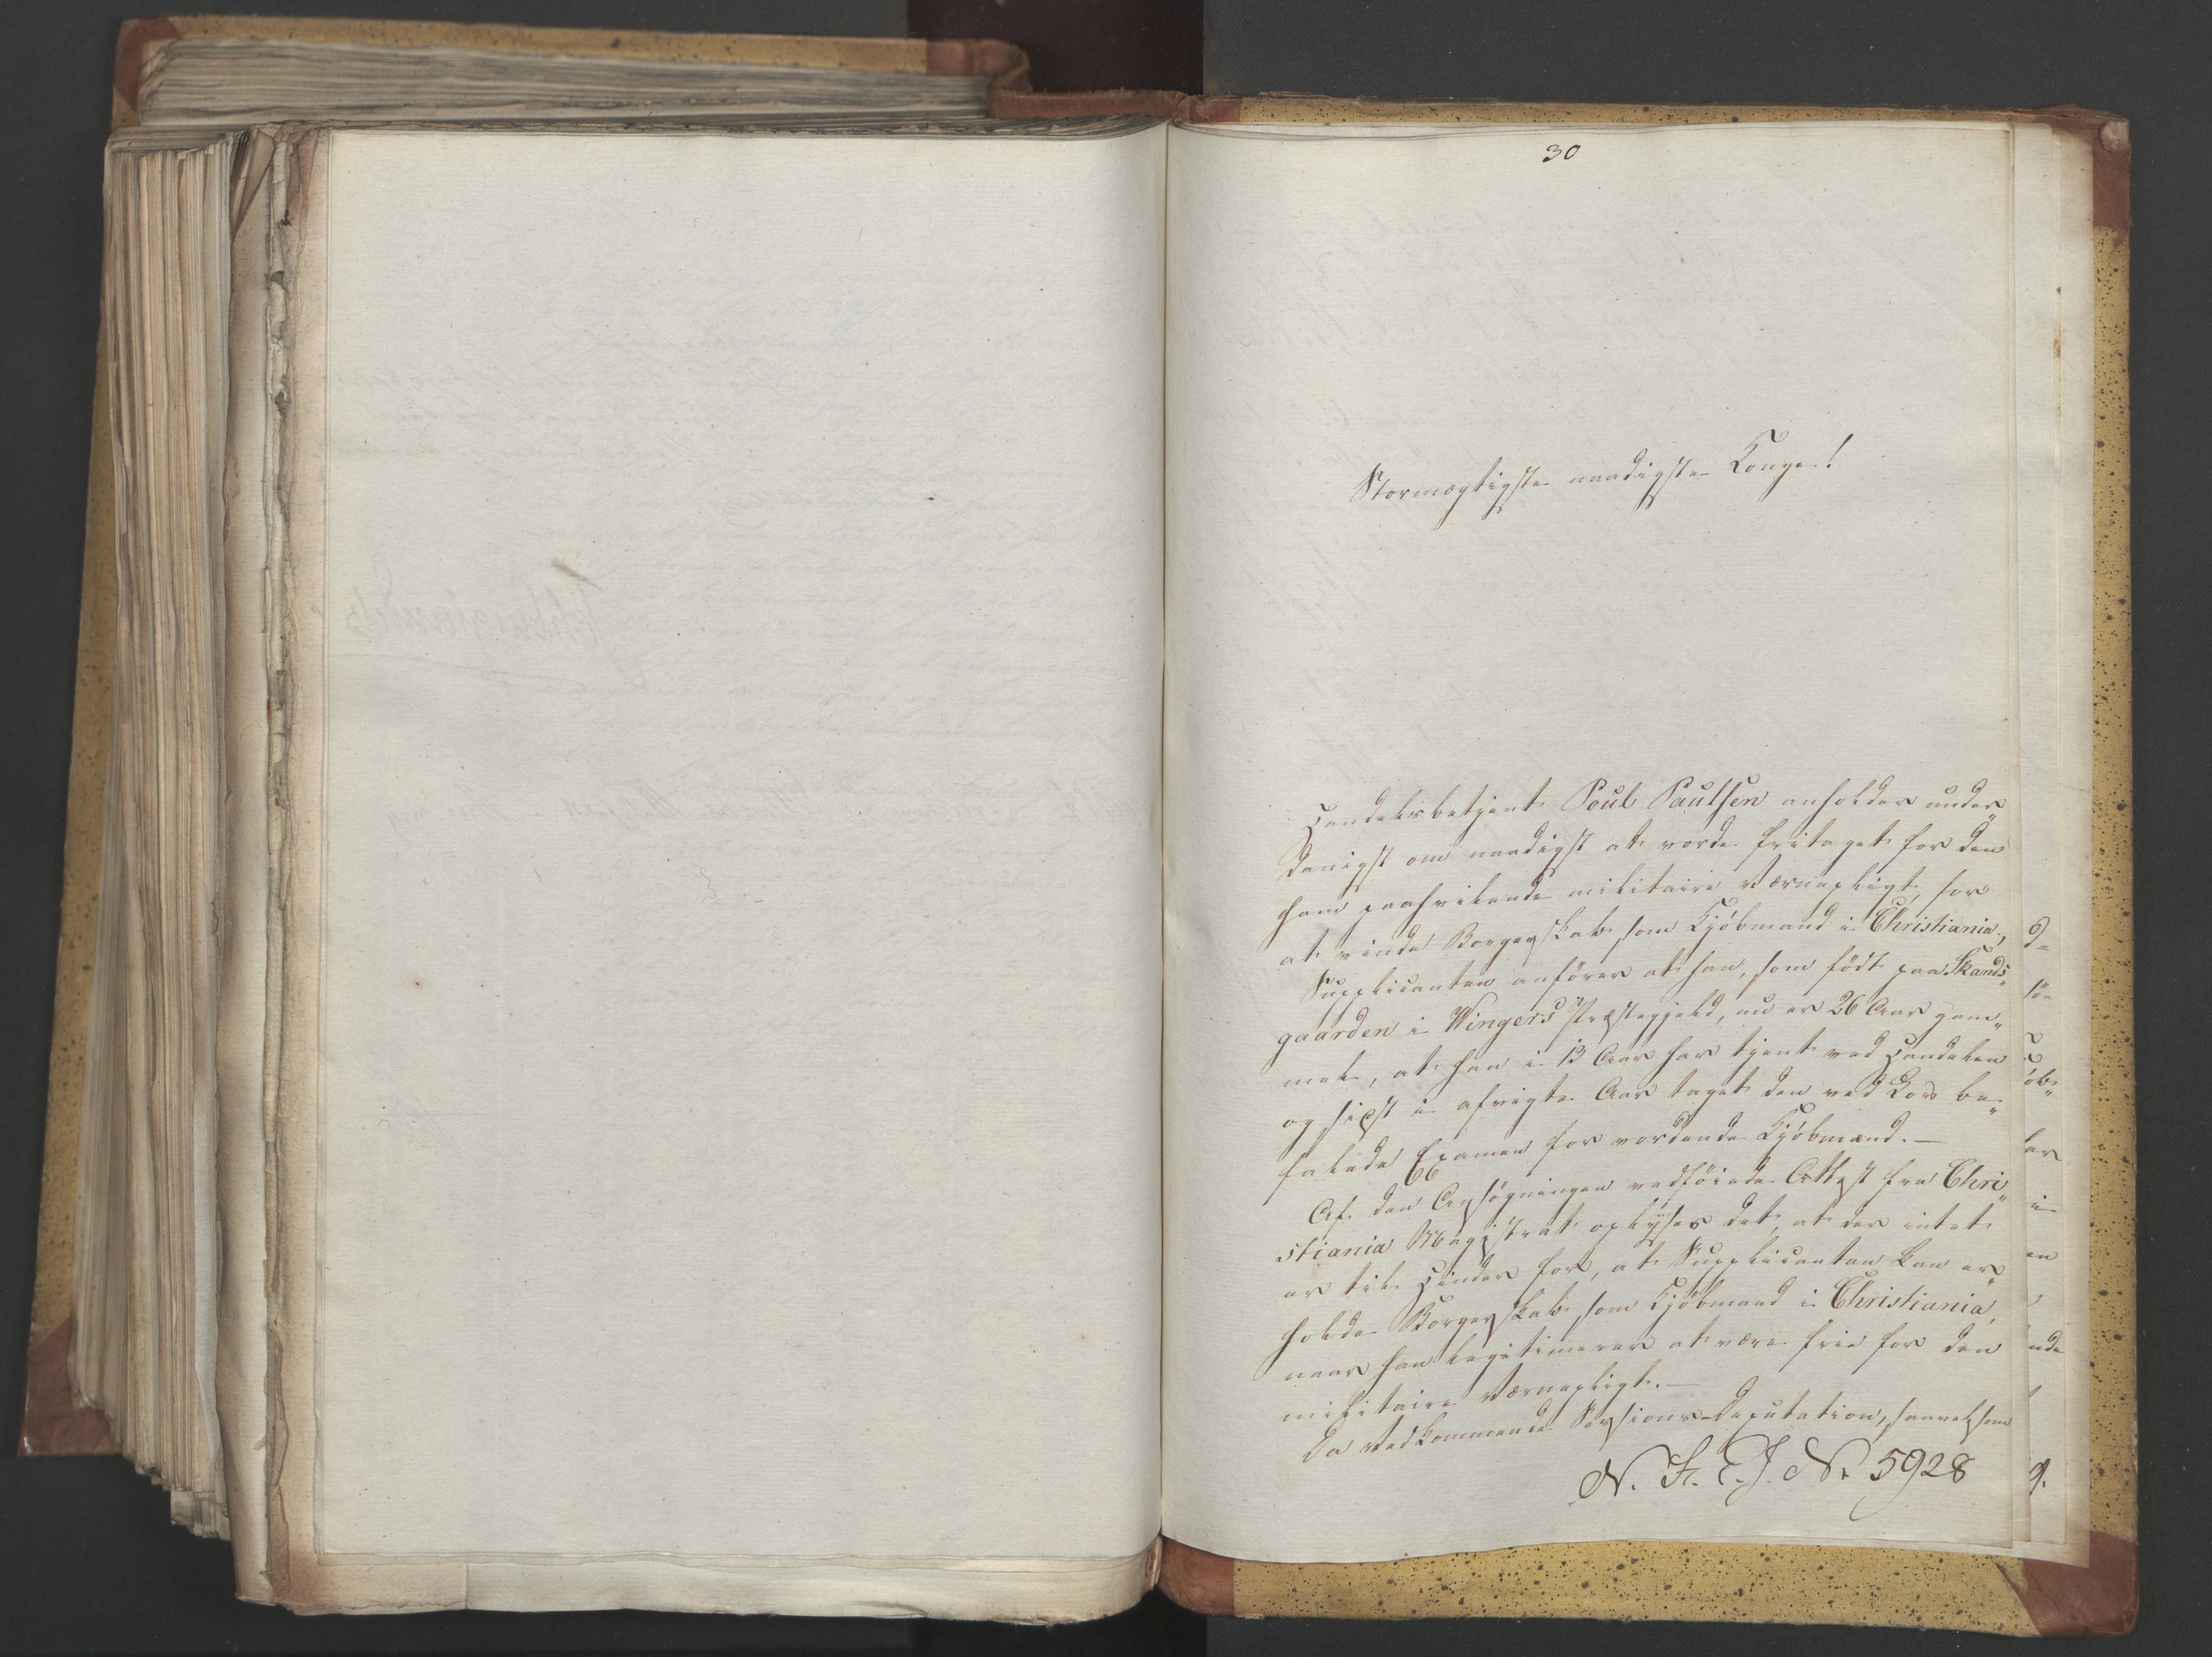 30
Stormægtigste naadigste Konge!
Handelsbetjent Poul Paulsen anholder under„
danigst om naadigst at vorde fritaget for den
ham paahvilende militaire Værnepligt, for
at vinde Borgerskab som Kjöbmand i Christiania,
Supplicanten anförer at han, som födt paa Skands„
gaarden i Wingers Præstegjeld, nu er 26 Aar gam„
mel, at han i 13 Aar har tjent ved Handelen
og sidst i afvigte Aar taget den ved Lov be„
falede Examen for vordende Kjöbmænd.—
Af den Ansögningen vedföiede Attest fra Chri„
stiania Magistrat oplyses det, at der intet
er til Hinder for, at Supplicanten kan er„
holde Borgerskab som Kjöbmand i Christiania,
naar han legitimerer at være frie for den
militaire Værnepligt.—
Da Vedkommende Sessions-Deputation, saavelsom
N. F. E. J. No 5928